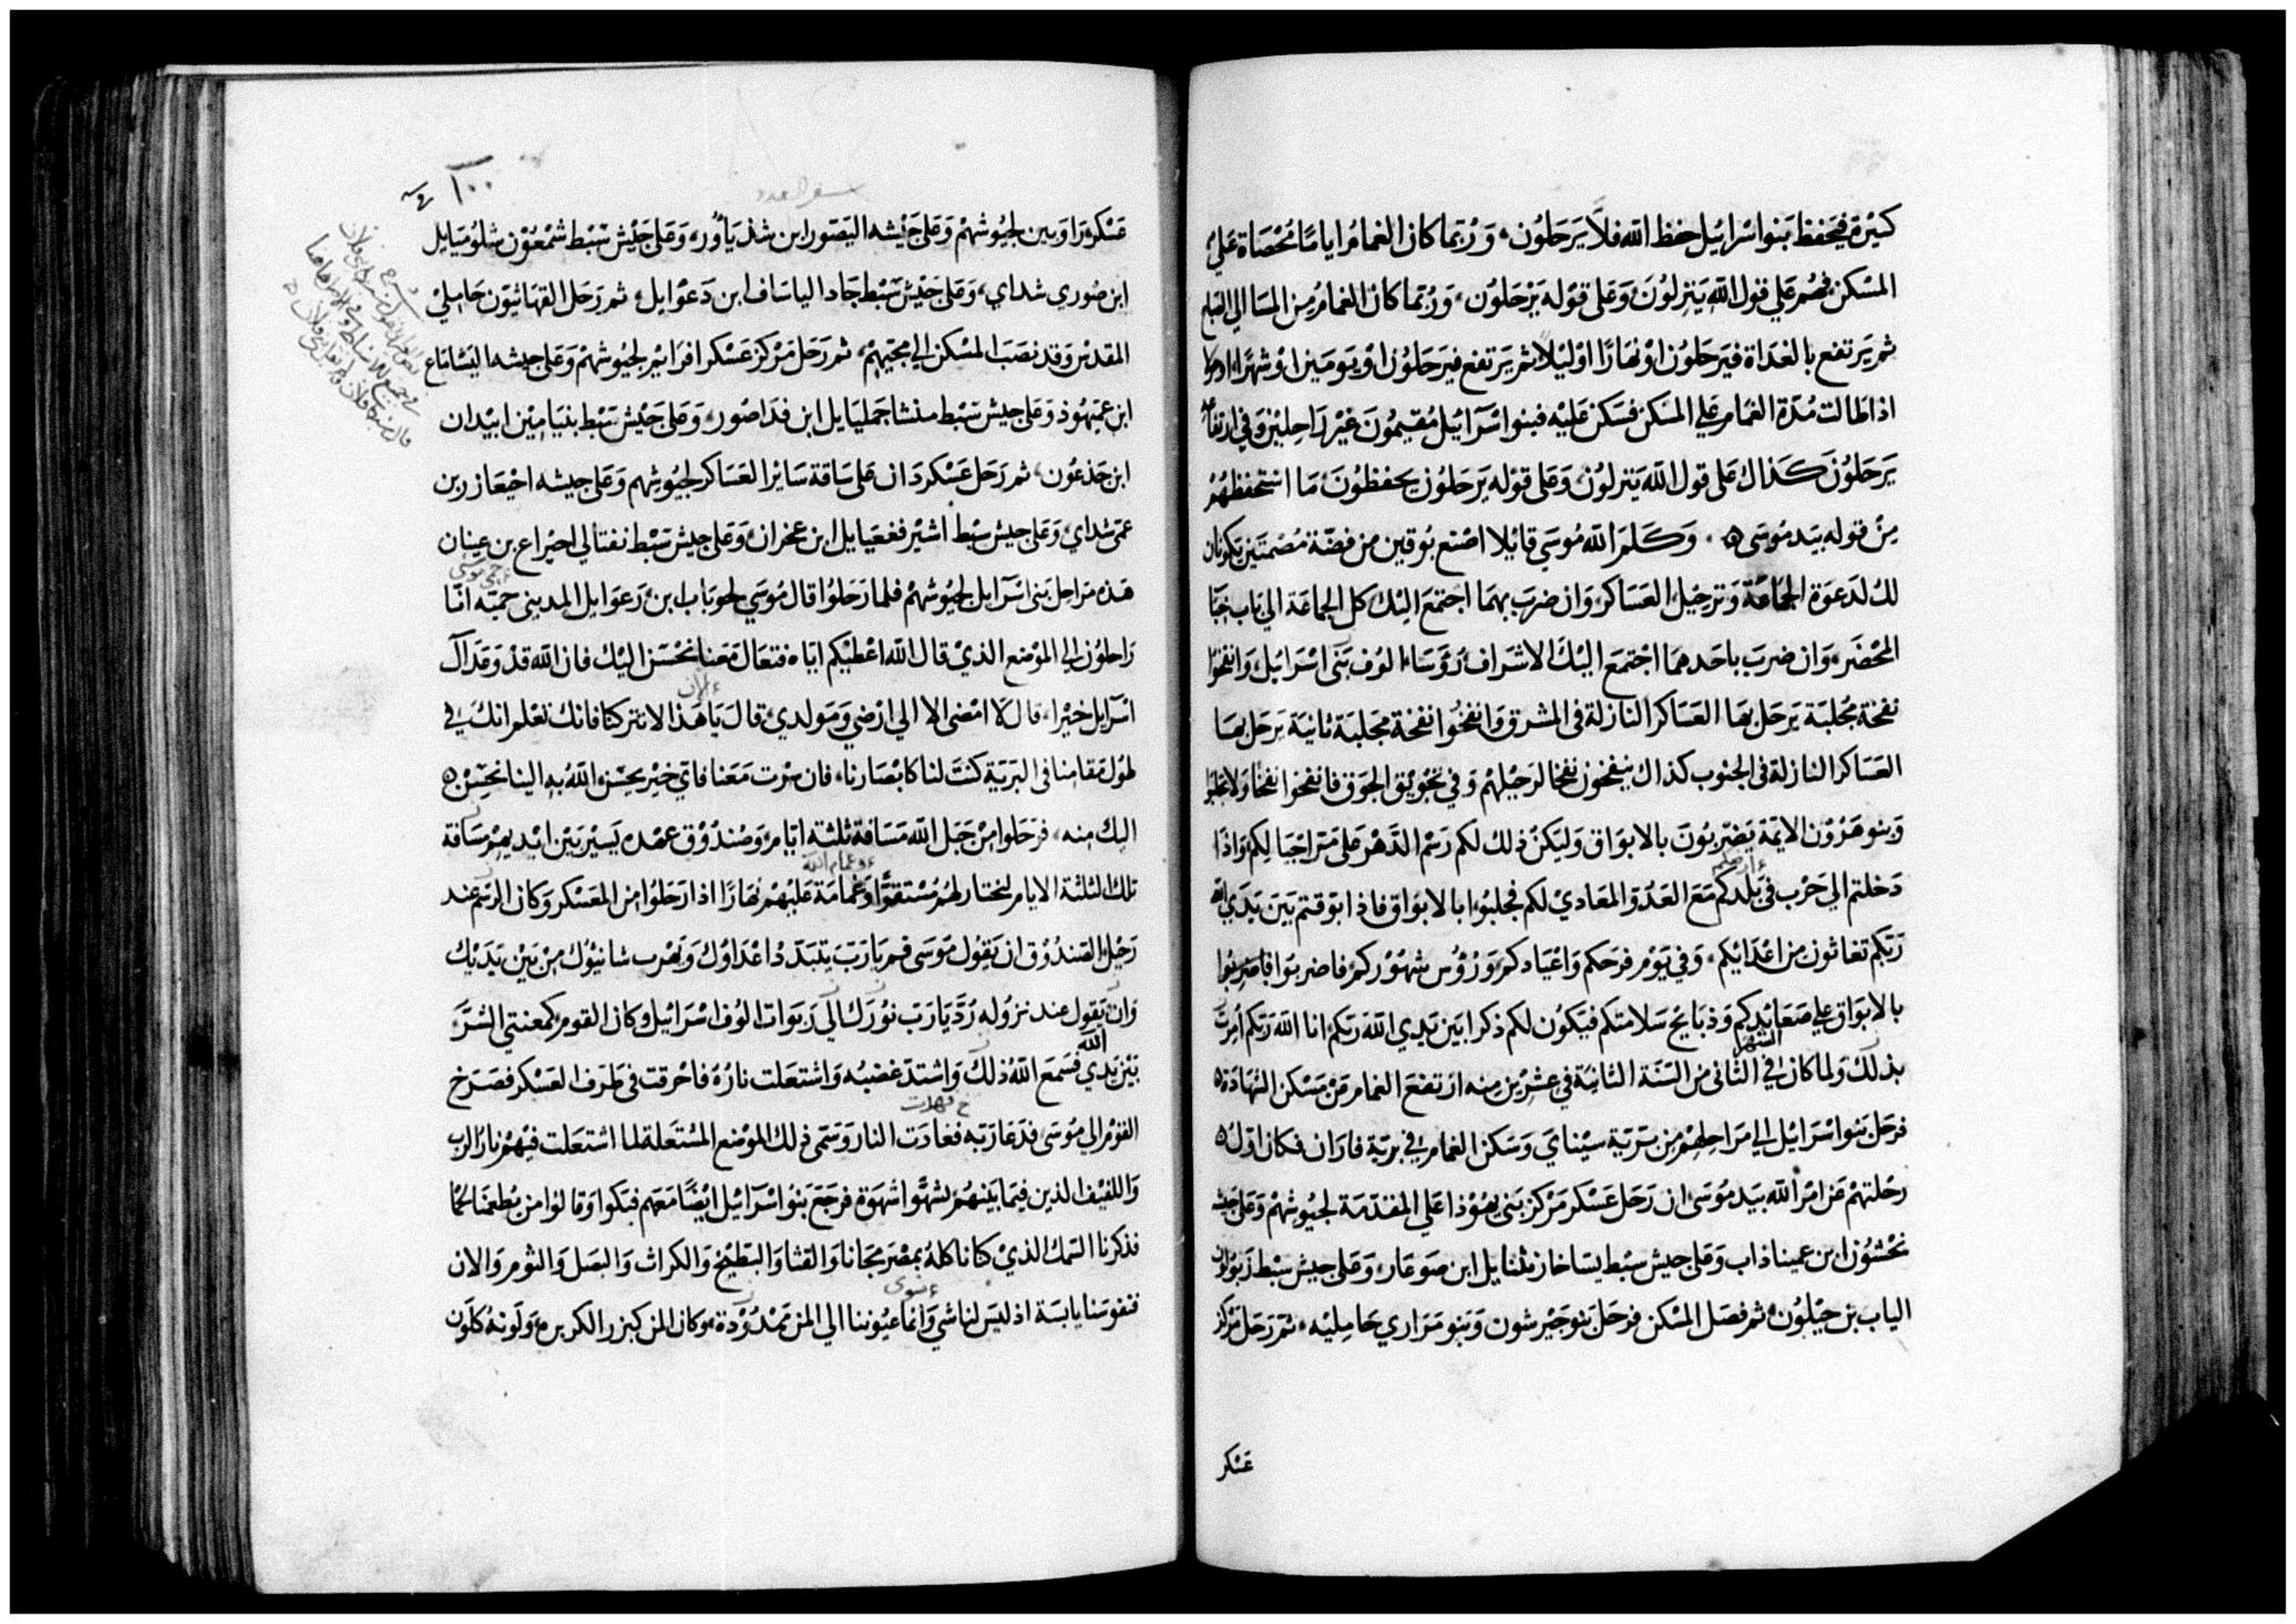 كثيرة فيحفظ بنوا اسرائيل حفظ الله فلا يرحلون، وربما كان الغمام اياما محصاة على
المسكن فهم علي قول الله ينزلون وعلى قوله يرحلون، وربما كان الغمام من المسا الي
ثم يرتفع بالغداة فيرحلون او نهارًا او ليلًا ثم يرتفع فيرحلون او يومين او شهرًا او
اذا طالت مدة الغمام علي المسكن فسكن عليه فبنوا اسرآئيل مقيمون غير راحلين وفي
يرحلون كذاك على قول الله ينزلون وعلى قوله يرحلون يحفظون ما استحفظهم
من قوله بيد موسى ه وكلم الله موسي قائلا اصنع بوقين من فضة مصمتين تكونان
لك لدعوة الجماعة وترحيل العساكر، وان ضرب بهما اجتمع اليك كل الجماعة الي باب خبا
المحضر، وان ضرب باحدهما اجتمع اليك الاشراف رؤساء الوف بني اسرائيل، وانفخوا
نفخة مجلبة يرحل بها العساكر النازلة في المشرق وانفخوا نفخة مجلبة ثانية يرحل بها
العساكر النازلة في الجنوب كذاك ينفخون نفخا لرحيلهم وفي تجويق الجوق فانفخوا نفخا ولا
وبنو هرون الايمة يضربون بالابواق وليكن ذلك لكم رسم الدهر على مر اجيالكم، واذا
دخلتم الي حرب في بلدكم مع العدو المعادي لكم فجلبوا بالابواق فاذا بوقتم بين يدي الله
ربكم تغاثون من اعدائكم، وفي يوم فرحكم واعيادكم ورؤوس شهوركم فاضربوا
بالابواق علي صعائدكم وذبايح سلامتكم فيكون لكم ذكرا بين يدي الله ربكم انا الله ربكم أمرت
الشهر
بذلك ولما كان في الثاني من السنة الثانية في عشرين منه ارتفع الغمام من مسكن الشهادة ه
فرحل بنوا اسرائيل الي مراحلهم من برية سيناي وسكن الغمام في برية فاران فكان اول ه
رحلتهم عن امر الله بيد موسى ان رحل عسكر مركز بني يهوذا على المقدمة لجيوشهم وعلى جيشه
نحشون ابن عميناذاب وعلى جيش سبط يساخار نثنايل ابن صوعار، وعلى جيش سبط زبولون
الياب بن حيلون، ثم فصل المسكن فرحل بنو جيرشون وبنو مراري حامليه، ثم رحل مركز
عسكر
١٠٠
سفر العدد
عسكر راوبين لجيوشهم وعلى جيشه اليصور ابن شذياور، وعلى جيش سبط شمعون شلوميايل
ابن صوري شداي، وعلى جيش سبط جاد الياساف ابن دعوايل، ثم رحل القهاثيون حاملي
المقدس وقد نصب المسكن الي مجيهم، ثم رحل مركز عسكر افرايم لجيوشهم وعلى جيشه اليساماع
ابن عميهوذ وعلى جيش سبط منشا جمليايل ابن فداصور، وعلى جيش سبط بنيامين ابيدان
ابن جذعون، ثم رحل عسكر دان على ساقة ساير العساكر لجيوشهم وعلى جيشه احيعازر بن
عمى شداي، وعلى جيش سبط اشير فغعيايل ابن عخران، وعلى جيش سبط نفتالي احيراع بن عينان
هذه مراحل بني اسرآيل لجيوشهم فلما رحلوا قال موسي لحوباب ابن رعوايل المديني حميه انا
راحلون الي الموضع الذي قال الله اعطيكم اياه فتعال معنا نحسن اليك فان الله قد وعد آل
اسرآيل خيرا، قال لا امضى الا الي ارضي ومولدي، قال يا هذا لا تتركنا فانك تعلم انك في
طول مقامنا في البرية كنت لنا كابصارنا، فان سرت معنا فاي خير يحسن الله به الينا نحسن ه
اليك منه، فرحلوا من جبل الله مسافة ثلثة ايام، وصندوق عهده يسير بين ايديهم مسافة
وغمام الله
تلك الثلثة الايام لنختار لهم مستقرًا وغمامة عليهم نهارًا اذا رحلوا من المعسكر وكان الرسم عند
رحيل الصندوق ان يقول موسى قم يا رب يتبدد اعداوك ويهرب شانئوك من بين يديك
وان يقول عند نزوله ردّ يا رب نورك الى ربوات الوف اسرائيل وكان القوم كمعنتي الشر
الله
بين يدي فسمع الله ذلك واشتد غضبه واشتعلت ناره فاحرقت في طرف العسكر فصرخ
القوم الي موسى فدعا ربه فغادت النار وسمى ذلك الموضع المشتعلة لما اشتعلت فيهم نار الرب
واللفيف الذين فيما بينهم تشهوا شهوة فرجع بنوا اسرآئيل ايضًا معهم فبكوا وقالوا من يطعمنا لحما
فذكرنا السمك الذي كنا ناكله بمصر مجانا والقثا والبطيخ والكراث والبصل والثوم والان
سوى
فنفوسنا يابسة اذ ليس لنا شي وانما عيوننا الي المن ممدودة، وكان المن كبزر الكزبره، ولونه كلون